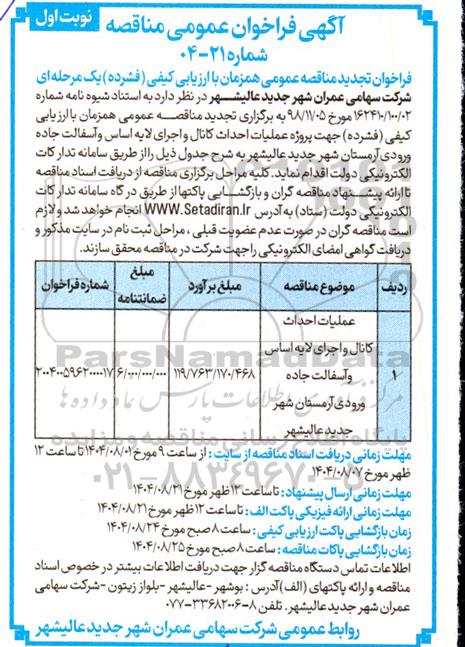 نوبت اول
آگهی فراخوان عمومی مناقصه
شماره ۲۱-۰۴
فراخوان تجدید مناقصه عمومی همزمان با ارزیابی کیفی (فشرده) یک مرحله ای
شرکت سهامی عمران شهر جدید عالیشهر در نظر دارد به استناد شیوه نامه شماره
۱۶۲۴۱۰/۱۰۰/۰۲ مورخ ۹۸/۱۱/۰۵ به برگزاری تجدید مناقصه عمومی همزمان با ارزیابی
کیفی (فشرده) جهت پروژه عملیات احداث کانال و اجرای لایه اساس وآسفالت جاده
ورودی آرمستان شهر جدید عالیشهر به شرح جدول ذیل را از طریق سامانه تدارکات
الکترونیکی دولت اقدام نماید. کلیه مراحل برگزاری مناقصه از دریافت اسناد مناقصه
تا ارائه پیشنهاد مناقصه گران و بازگشایی پاکتها از طریق درگاه سامانه تدارکات
الکترونیکی دولت (ستاد) به آدرس WWW.Setadiran.Ir انجام خواهد شد و لازم
است مناقصه گران در صورت عدم عضویت قبلی، مراحل ثبت نام در سایت مذکور و
دریافت گواهی امضای الکترونیکی را جهت شرکت در مناقصه محقق سازند.
ردیف موضوع مناقصه مبلغ برآورد مبلغ ضمانتنامه شماره فراخوان
۱ عملیات احداث کانال و اجرای لایه اساس وآسفالت جاده ورودی آرمستان شهر جدید عالیشهر ۱۱۹/۷۶۳/۱۷۰/۴۶۸ ۶/۰۰۰/۰۰۰/۰۰۰ ۲۰۰۴۰۰۵۹۶۲۰۰۰۰۱۷
مهلت زمانی دریافت اسناد مناقصه از سایت: از ساعت ۹ مورخ ۱۴۰۴/۰۸/۰۱ تا ساعت ۱۲
ظهر مورخ ۱۴۰۴/۰۸/۰۷
مهلت زمانی ارسال پیشنهاد: تا ساعت ۱۲ ظهر مورخ ۱۴۰۴/۰۸/۲۱
مهلت زمانی ارائه فیزیکی پاکت الف: تا ساعت ۱۲ ظهر مورخ ۱۴۰۴/۰۸/۲۱
زمان بازگشایی پاکت ارزیابی کیفی: ساعت ۸ صبح مورخ ۱۴۰۴/۰۸/۲۴
زمان بازگشایی پاکات مناقصه: ساعت ۸ صبح مورخ ۱۴۰۴/۰۸/۲۵
اطلاعات تماس دستگاه مناقصه گزار جهت دریافت اطلاعات بیشتر در خصوص اسناد
مناقصه و ارائه پاکتهای (الف) آدرس: بوشهر -عالیشهر -بلوار زیتون -شرکت سهامی
عمران شهر جدید عالیشهر. تلفن ۸-۳۳۶۸۲۰۰۶-۰۷۷
روابط عمومی شرکت سهامی عمران شهر جدید عالیشهر
ParsNamadData
مرکز فرآوری اطلاعات پارس نماد داده ها
پایگاه اطلاع رسانی مناقصه و مزایده
۰۲۱-۸۸۳۴۹۶۷۰-۵